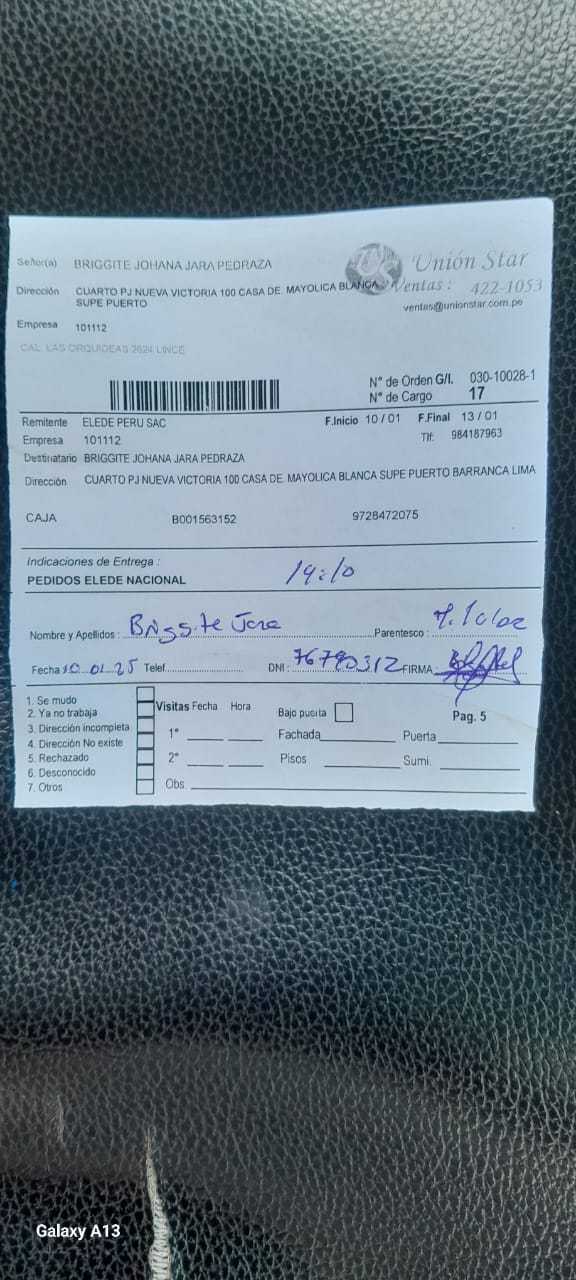 Señor(a) BRIGGITE JOHANA JARA PEDRAZA
Unión Star
Dirección CUARTO PJ NUEVA VICTORIA 100 CASA DE. MAYOLICA BLANCA
SUPE PUERTO
Ventas : 422-1053
ventas@unionstar.com.pe
Empresa 101112
CAL. LAS ORQUIDEAS 2624 LINCE
N° de Orden G/I. 030-10028-1
N° de Cargo 17
Remitente ELEDE PERU SAC F.Inicio 10 / 01 F.Final 13 / 01
Empresa 101112 Tlf: 984187963
Destinatario BRIGGITE JOHANA JARA PEDRAZA
Dirección CUARTO PJ NUEVA VICTORIA 100 CASA DE. MAYOLICA BLANCA SUPE PUERTO BARRANCA LIMA
CAJA B001563152 9728472075
Indicaciones de Entrega :
PEDIDOS ELEDE NACIONAL 14:10
Nombre y Apellidos : Briggite Jara Parentesco :
Fecha 10.01.25 Telef. DNI : 76790312 FIRMA
1. Se mudo
2. Ya no trabaja
3. Dirección incompleta
4. Dirección No existe
5. Rechazado
6. Desconocido
7. Otros
Visitas Fecha Hora Bajo puerta Pag. 5
1° Fachada Puerta
2° Pisos Sumi.
Obs.
Galaxy A13